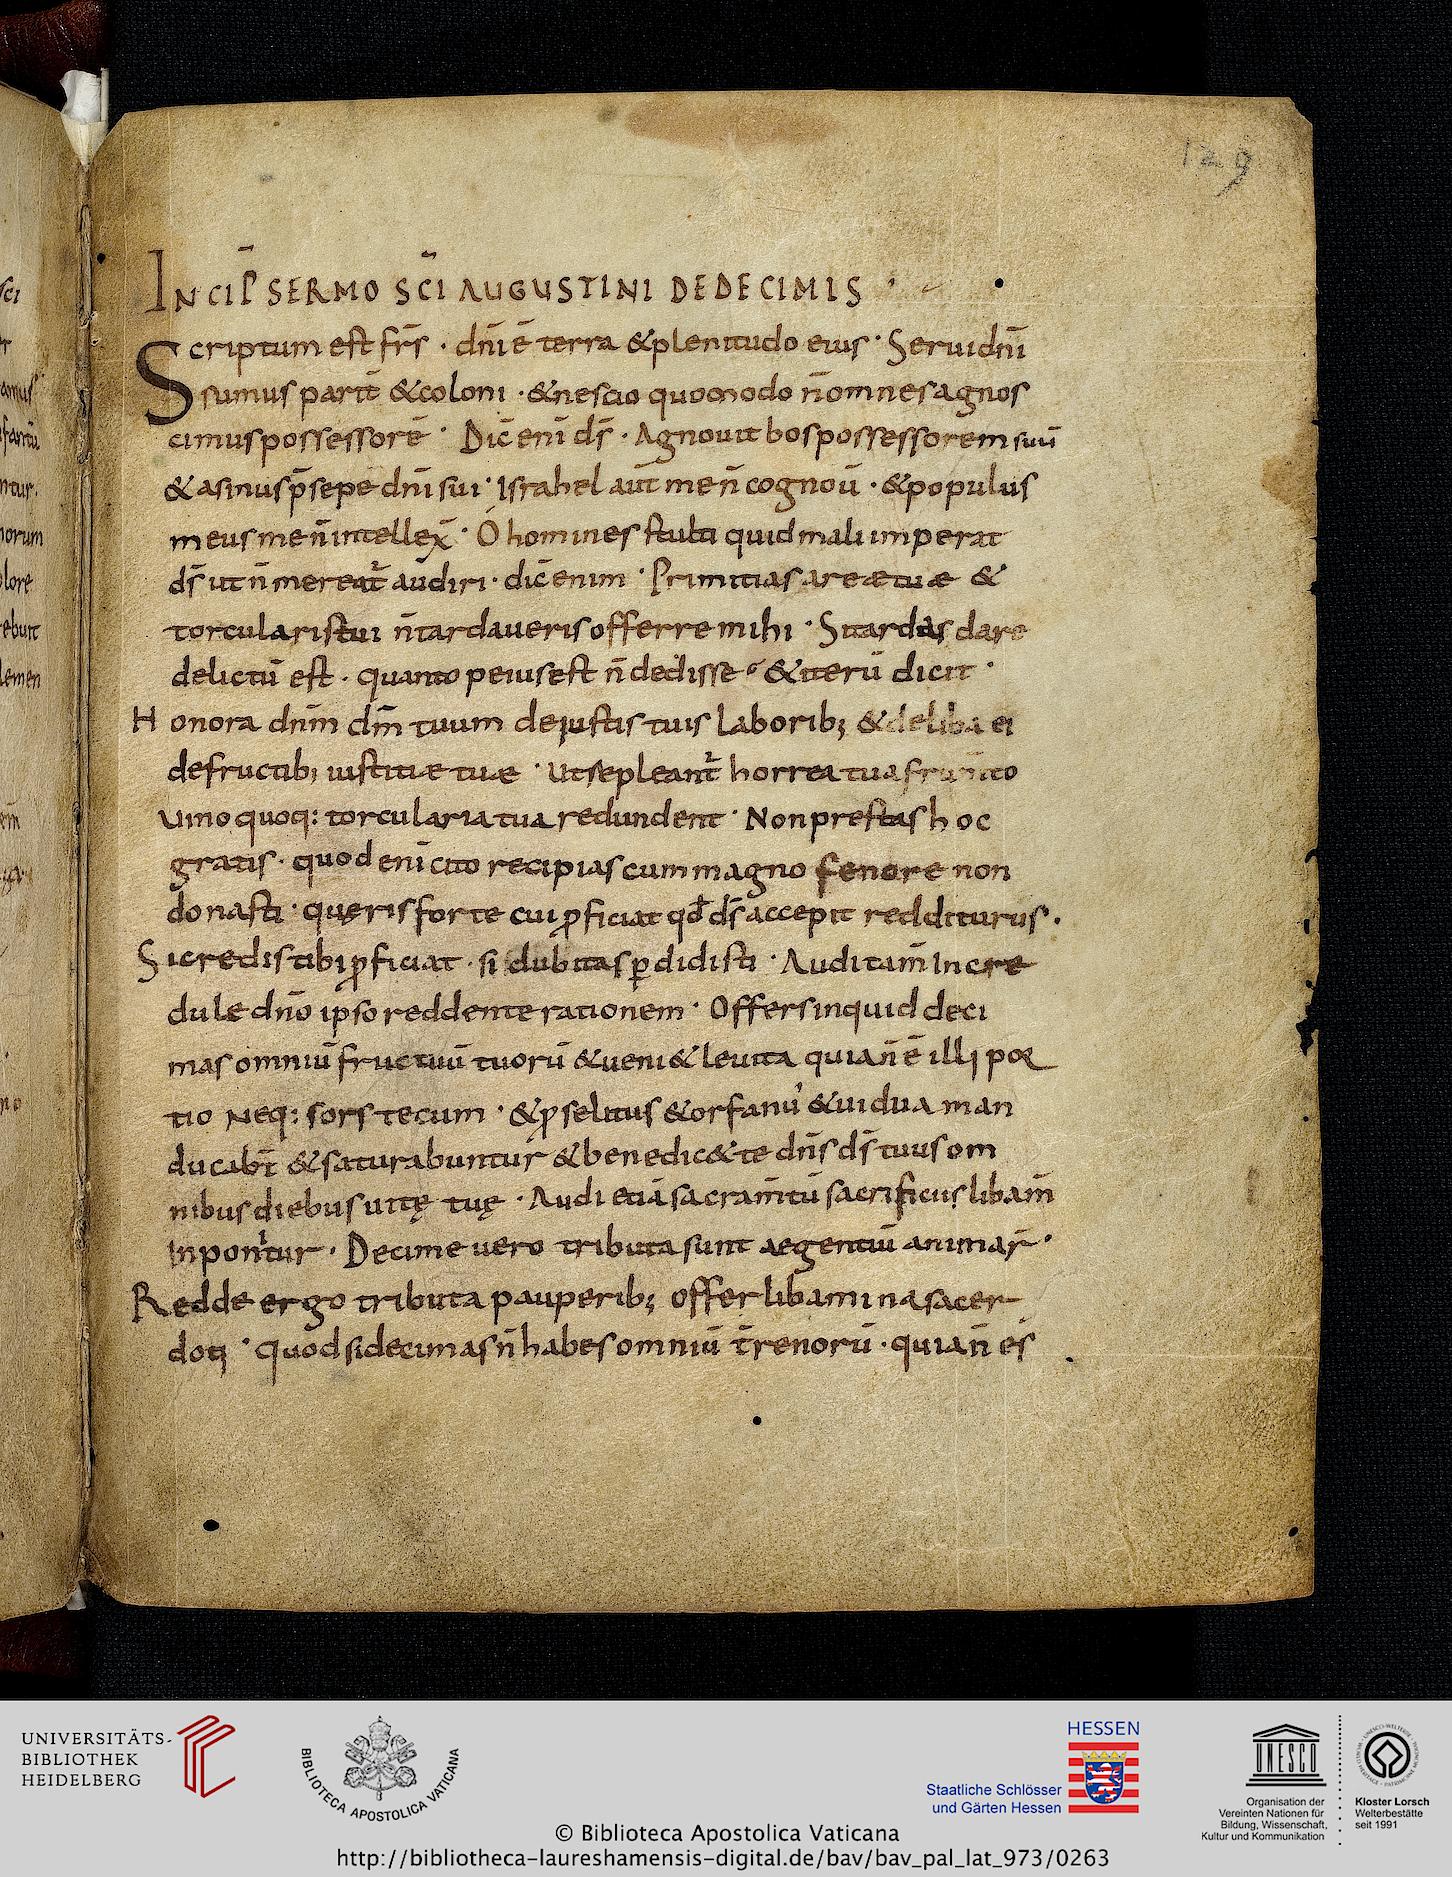 129
INCIP̄ SERMO SC̄I AUGUSTINI DE DECIMIS
Scriptum est fr̄s · dn̄i ē terra & plenitudo eius · Serui dn̄i
sumus parit̄ & coloni · & nescio quomodo n̄ omnes agnos
cimus possessorē · Dic̄ enī ds̄ · Agnouit bos possessorem suū
& asinus p̄sepe dn̄i sui · Israhel aūt me n̄ cognoū · & populus
meus me n̄ intellex̄ · O homines stulti quid mali imperat
ds̄ ut n̄ mereat̄ audiri · dic̄ enim · Primitias areæ tuæ &
torcularis tui n̄ tardaueris offerre mihi · Si tardas dare
delictū est · quanto peius est n̄ dedisse · & iterū dicit ·
Honora dn̄m dm̄ tuum de iustis tuis laborib; & deliba ei
de fructib; iustitiæ tuæ · Ut repleant̄ horrea tua frumento
Uino quoq: torcularia tua redundent · Non prestas hoc
gratis · quod enī cito recipias cum magno fenore non
donasti · quęris forte cui ꝓficiat qd̄ ds̄ accepit redditurus ·
Si credis tibi ꝓficiat · si dubitas ꝑdidisti · Audi tam̄ Incre
dule dn̄o ipso reddente rationem · Offers inquid deci
mas omniū fructuū tuorū & ueni& leuita quia n̄ ē illi por
tio Neq: sors tecum · & ꝓselitus & orfanu' & uidua man
ducab̄t & saturabuntur & benedic& te dn̄s ds̄ tuus om
nibus diebus uitę tuę · Audi etiā sacram̄tū sacrificiis libam̄
Inponn̄tur · Decime uero tributa sunt aegentiū animar̄ ·
Redde ergo tributa pauperib; offer libamina sacer
doti · Quod si decimas n̄ habes omniū t̄renorū · quia n̄ es
UNIVERSITÄTS-
BIBLIOTHEK
HEIDELBERG
BIBLIOTECA APOSTOLICA VATICANA
HESSEN
Staatliche Schlösser
und Gärten Hessen
UNESCO
Organisation der
Vereinten Nationen für
Bildung, Wissenschaft,
Kultur und Kommunikation
Kloster Lorsch
Welterbestätte
seit 1991
© Biblioteca Apostolica Vaticana
http://bibliotheca-laureshamensis-digital.de/bav/bav_pal_lat_973/0263